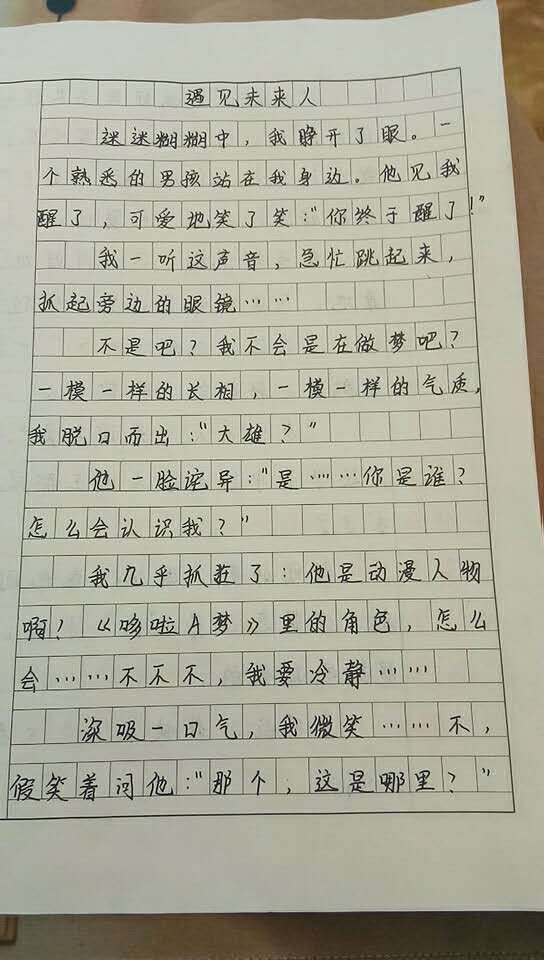 遇见未来人
迷迷糊糊中，我睁开了眼。一
个熟悉的男孩站在我身边。他见我
醒了，可爱地笑了笑：“你终于醒了！”
我一听这声音，急忙跳起来，
抓起旁边的眼镜……
不是吧？我不会是在做梦吧？
一模一样的长相，一模一样的气质，
我脱口而出：“大雄？”
他一脸诧异：“是……你是谁？
怎么会认识我？”
我几乎抓狂了：他是动漫人物
啊？《哆啦A梦》里的角色，怎么
会……不不不，我要冷静……
深吸一口气，我微笑……不，
假笑着问他：“那个，这是哪里？”